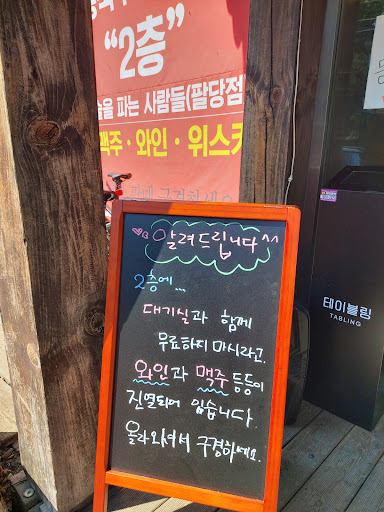 "2층"
술을 파는 사람들(팔당점
맥주·와인·위스키
구경하세요
알려드립니다^^
2층에...
대기실과 함께
무료하지 마시라고.
와인과 맥주 등등이
진열되어 있습니다.
올라와셔서 구경하세요.
테이블링
TABLING